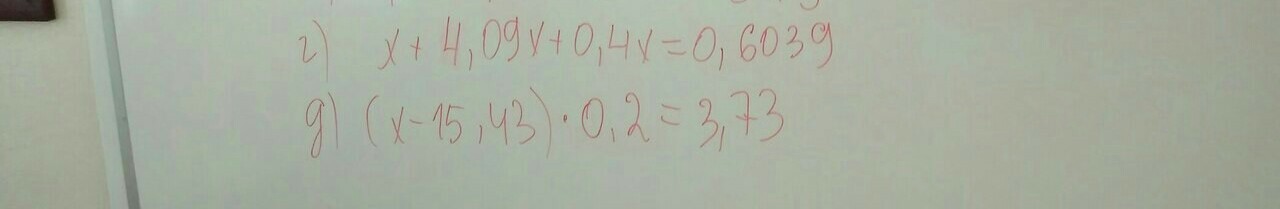 г) x + 4,09x + 0,4x = 0,6039
д) (x - 15,43) · 0,2 = 3,73